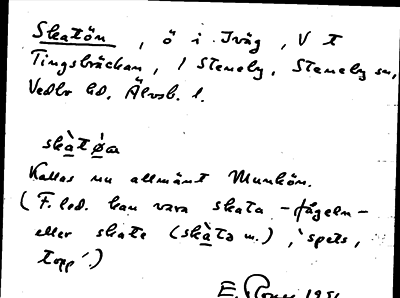 Skatön, ö i Iväg, V t
Tingsbräckan, / Steneby, Steneby sn,
Vedbo hd, Älvsb. l.
skàtøa
Kallas nu allmänt Munkön.
(F. led. kan vara skata -fågeln-
eller skate (skàta m.), 'spets,
topp'.)
E. 195